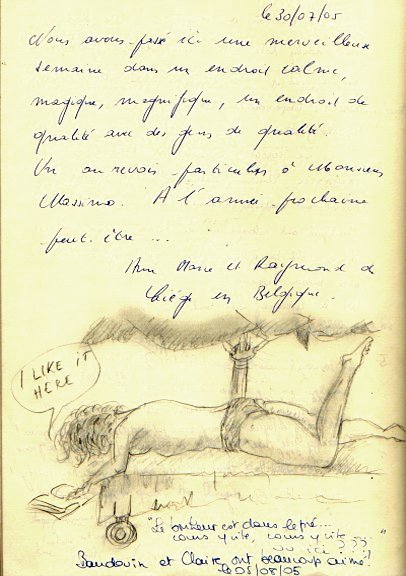 le 30/07/05
Nous avons passé ici une merveilleuse
semaine dans un endroit calme,
magique, magnifique, un endroit de
qualité avec des gens de qualité.
Un au revoir particulier à Monsieur
Massimo. A l'année prochaine
peut-être ...
Anne Marie et Raymond de
Liège en Belgique.
I LIKE IT
HERE
"Le bonheur est dans le pré...
cours y vite, cours y vite
ou ici ? ..."
Baudouin et Claire ont beaucoup aimé!
le 05/08/05